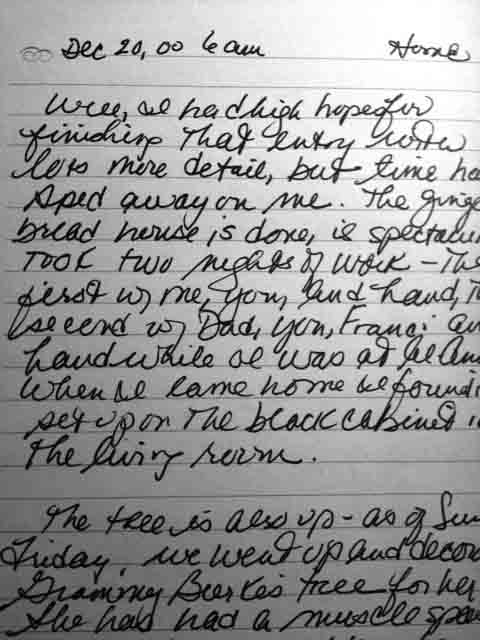 Dec 20, 00 6 am Home
Well, I had high hopes for
finishing that entry with
lots more detail, but time ha
sped away on me. The ginge
bread house is done, is spectacu
Took two nights of work - The
first w/ me, you, and
second w/ Dad, you, Franci an
while I was at
When I came home I found i
set up on the black cabinet i
the living room.
The tree is also up - as of Sun
Friday, we went up and decor
Grammy Burke's tree for her
She has had a muscle spas